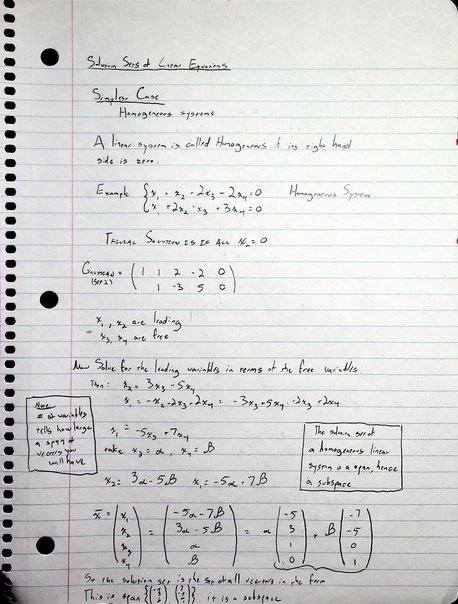 Solution Sets of Linear Equations
Simplest Case:
Homogeneous systems
A linear system is called Homogeneous if its right hand
side is zero.
Example { x₁ + x₂ + 2x₃ - 2x₄ = 0 Homogeneous System
x₁ + 2x₂ - x₃ + 3x₄ = 0
Trivial Solution is is all xₙ = 0
Gaussian = ( 1 1 2 -2 0
(step 2) 1 -3 5 0 )
x₁, x₂ are leading
x₃, x₄ are free
Now Solve for the leading variables in terms of the free variables
Then: x₂ = 3x₃ - 5x₄
x₁ = -x₂ - 2x₃ + 2x₄ = -3x₃ + 5x₄ - 2x₃ + 2x₄
Note:
# of variables
tells how large
a span of
vectors you
will have
x₁ = -5x₃ + 7x₄
take x₃ = α, x₄ = β
x₂ = 3α - 5β x₁ = -5α + 7β
The solution set of
a homogeneous linear
system is a span, hence
a subspace
x̄ = ( x₁ ) = ( -5α - 7β ) = α ( -5 ) + β ( -7 )
( x₂ ) ( 3α - 5β ) ( 3 ) ( -5 )
( x₃ ) ( α ) ( 1 ) ( 0 )
( x₄ ) ( β ) ( 0 ) ( 1 )
So the solution set is the set of all vectors in the form
This is span { } it is a subspace